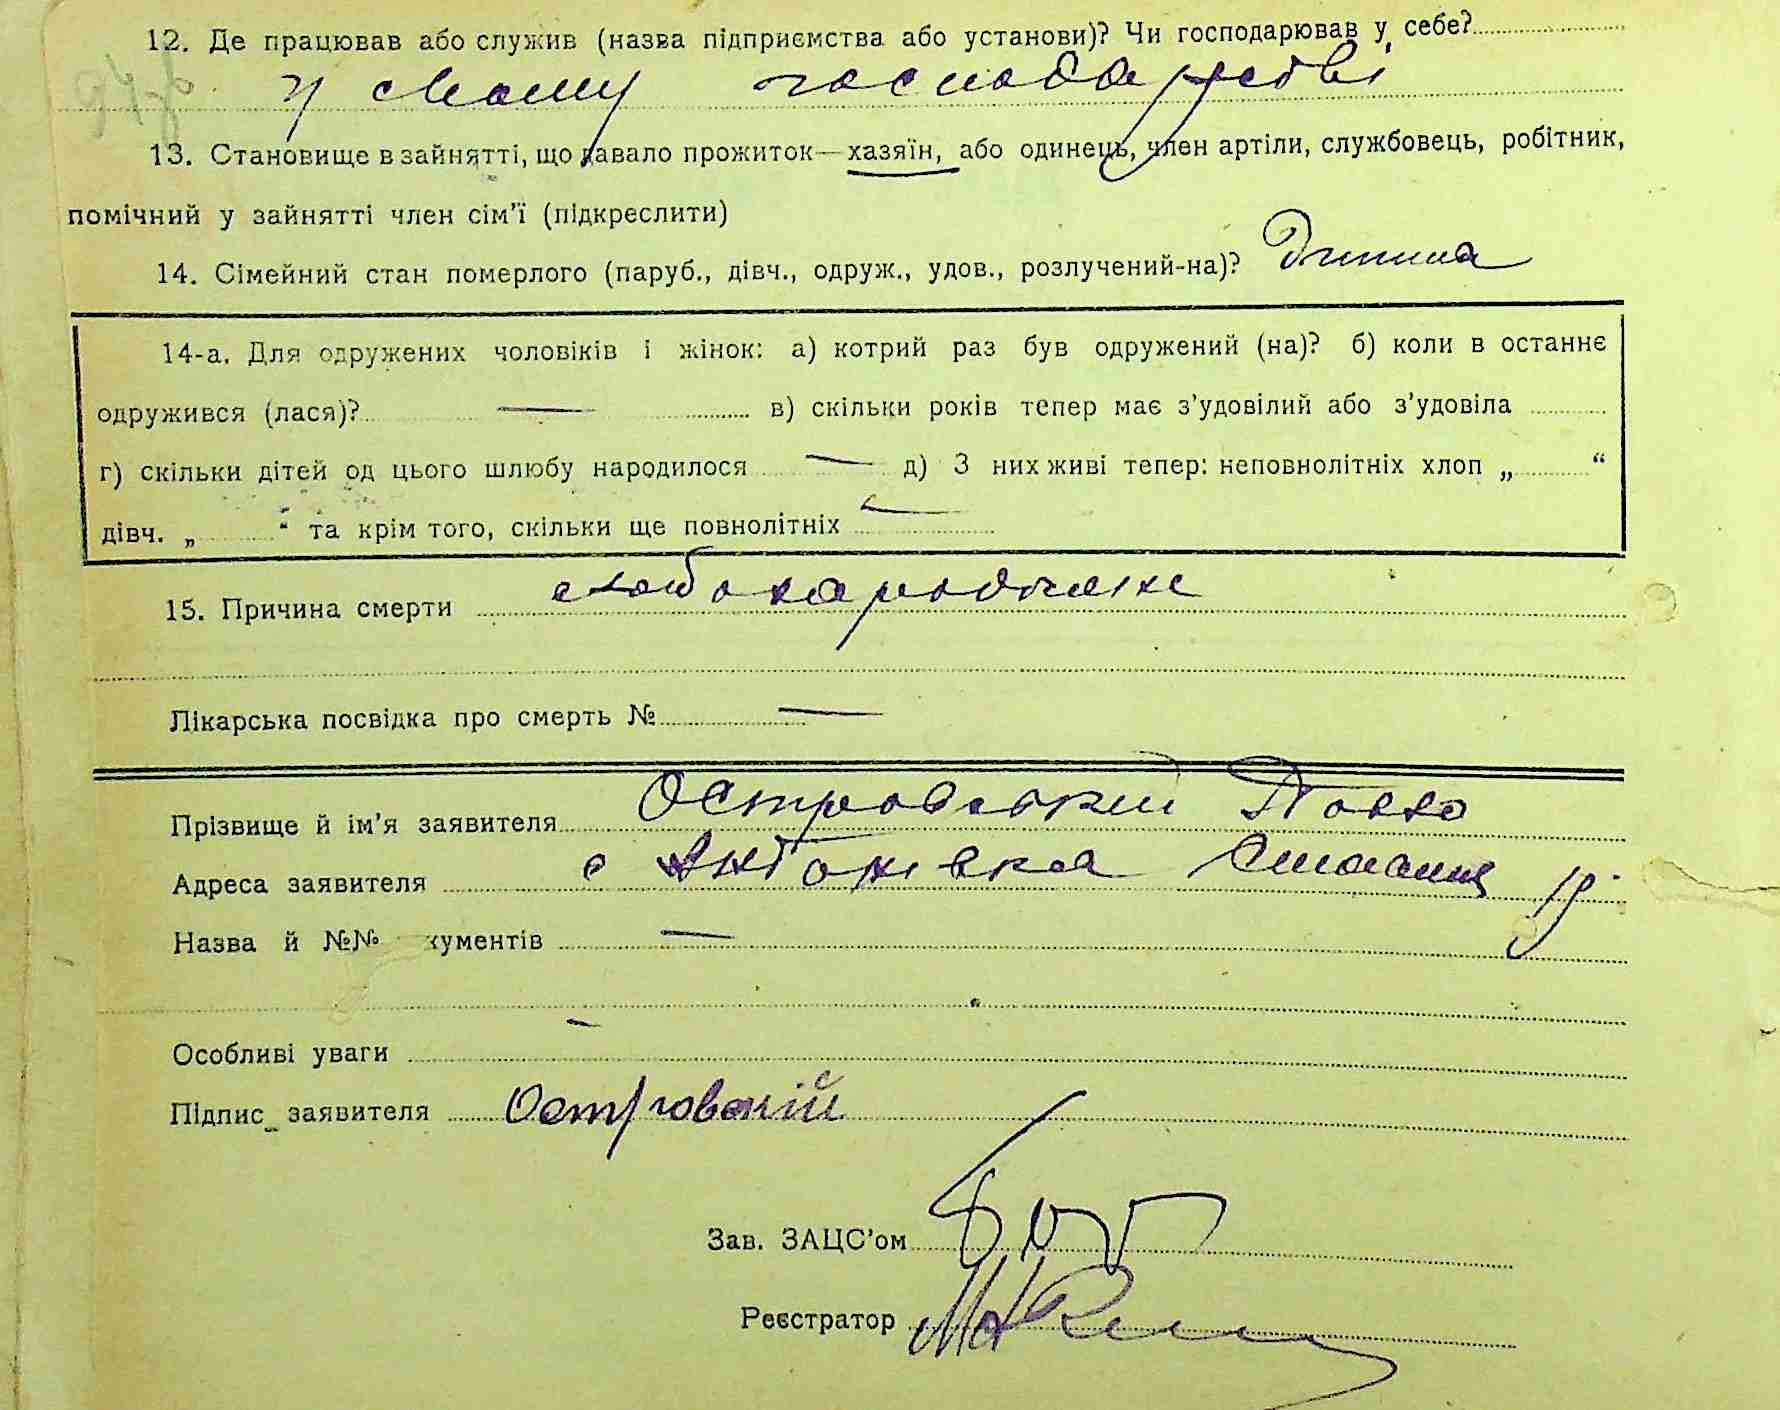 12. Де працював або служив (назва підприємства або установи)? Чи господарював у себе?
У свому господарстві
13. Становище в зайнятті, що давало прожиток—хазяїн, або одинець, член артіли, службовець, робітник,
помічний у зайнятті член сім'ї (підкреслити)
14. Сімейний стан померлого (паруб., дівч., одруж., удов., розлучений-на)? Дитина
14-а. Для одружених чоловіків і жінок: а) котрий раз був одружений (на)? б) коли в останнє
одружився (лася)? — в) скільки років тепер має з'удовілий або з'удовіла
г) скільки дітей од цього шлюбу народилося — д) З них живі тепер: неповнолітніх хлоп „ “
дівч. „ “ та крім того, скільки ще повнолітніх —
15. Причина смерти слабонароджене
Лікарська посвідка про смерть № —
Прізвище й ім'я заявителя Островський Павло
Адреса заявителя с Антонівка р
Назва й №№ кументів —
Особливі уваги —
Підпис заявителя Островский
Зав. ЗАЦС'ом
Реєстратор